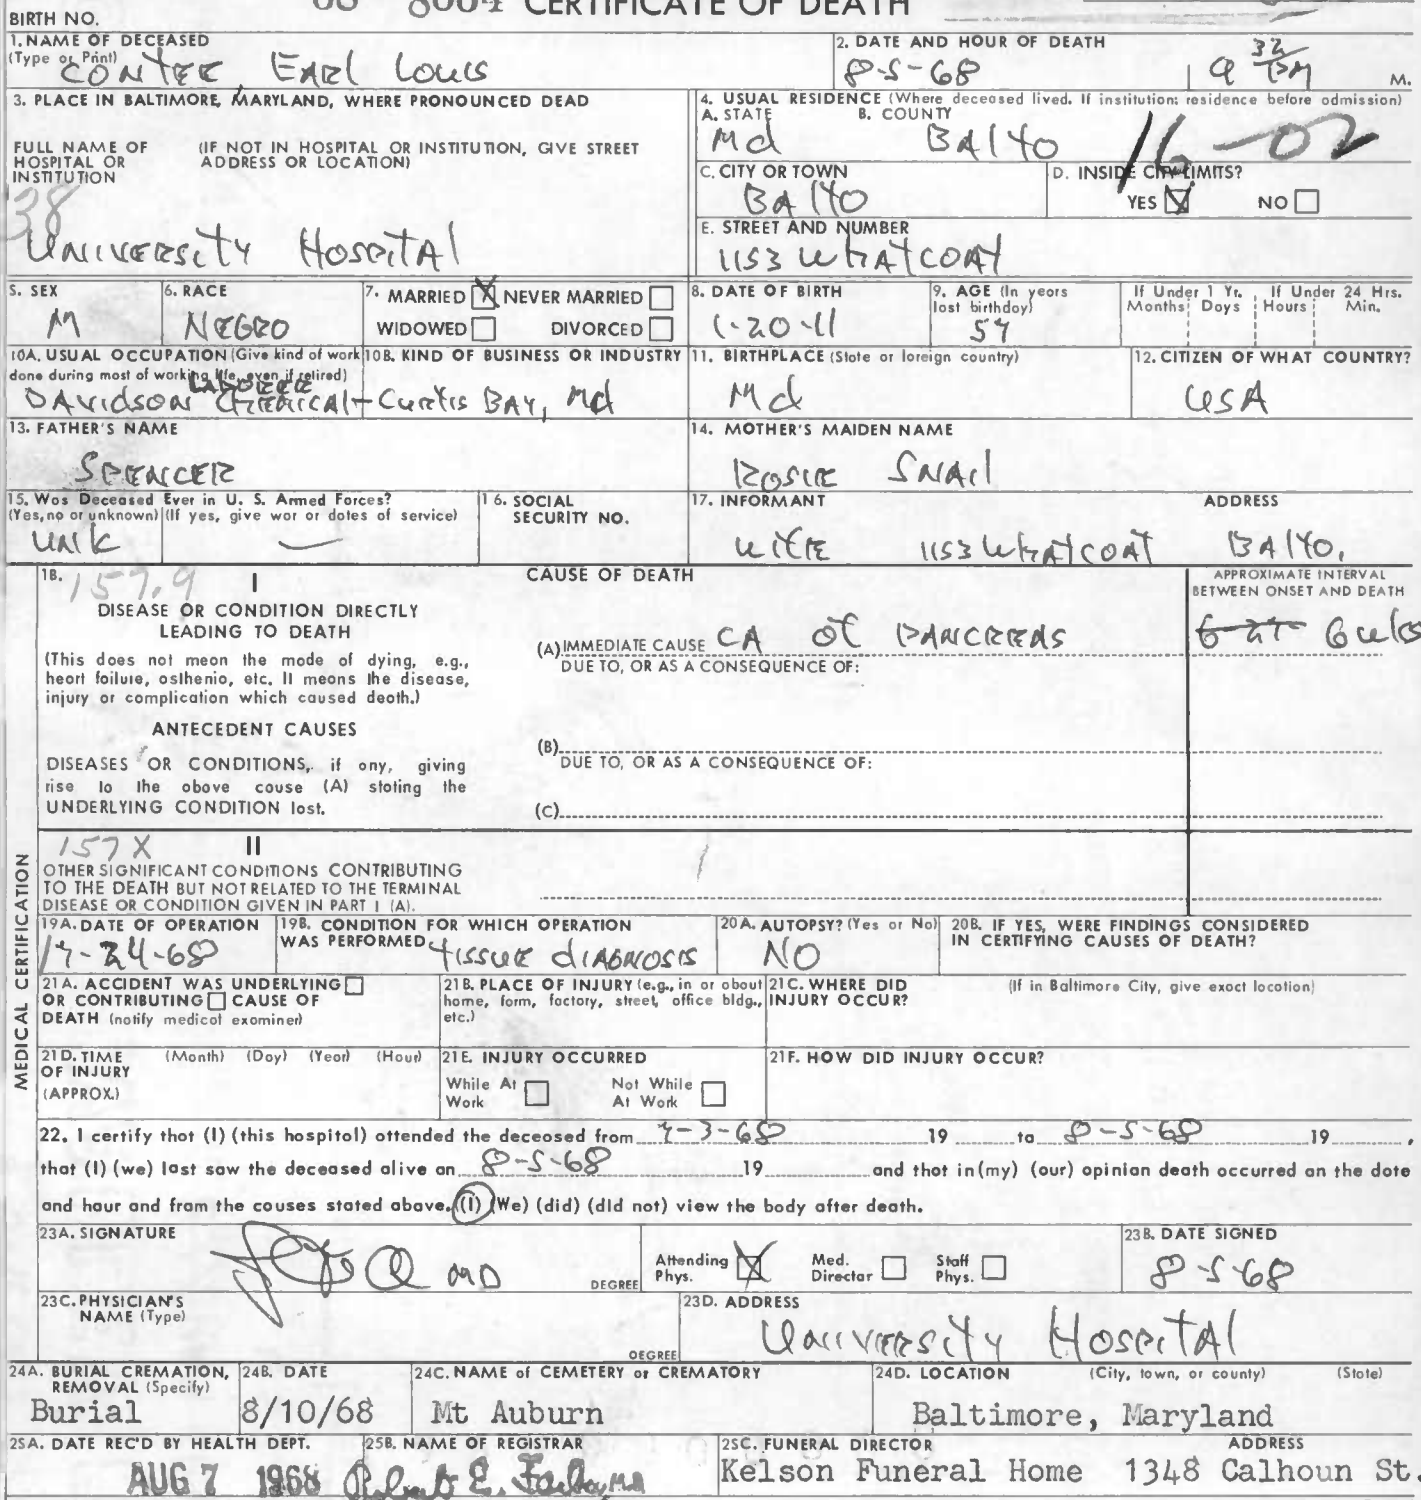 CERTIFICATE OF DEATH
BIRTH NO.
1. NAME OF DECEASED
(Type or Print)
CONTEE, EARL LOUIS
2. DATE AND HOUR OF DEATH
8-5-68 9 32 PM M.
3. PLACE IN BALTIMORE, MARYLAND, WHERE PRONOUNCED DEAD
FULL NAME OF HOSPITAL OR INSTITUTION
(IF NOT IN HOSPITAL OR INSTITUTION, GIVE STREET ADDRESS OR LOCATION)
38
UNIVERSITY HOSPITAL
4. USUAL RESIDENCE (Where deceased lived. If institution: residence before admission)
A. STATE B. COUNTY
Md BALTO 16-02
C. CITY OR TOWN
BALTO
D. INSIDE CITY LIMITS?
YES X NO
E. STREET AND NUMBER
1153 WHATCOAT
5. SEX
M
6. RACE
NEGRO
7. MARRIED X NEVER MARRIED
WIDOWED DIVORCED
8. DATE OF BIRTH
1-20-11
9. AGE (In years last birthday)
57
If Under 1 Yr. Months Days
If Under 24 Hrs. Hours Min.
10A. USUAL OCCUPATION (Give kind of work done during most of working life, even if retired)
LABORER
10B. KIND OF BUSINESS OR INDUSTRY
DAVIDSON CHEMICAL - CURTIS BAY, Md
11. BIRTHPLACE (State or foreign country)
Md
12. CITIZEN OF WHAT COUNTRY?
USA
13. FATHER'S NAME
SPENCER
14. MOTHER'S MAIDEN NAME
ROSIE SNAIL
15. Was Deceased Ever in U. S. Armed Forces?
(Yes, no or unknown) (If yes, give war or dates of service)
UNK —
16. SOCIAL SECURITY NO.
17. INFORMANT ADDRESS
WIFE 1153 WHATCOAT BALTO.
18. 157.9 I
DISEASE OR CONDITION DIRECTLY
LEADING TO DEATH
(This does not mean the mode of dying, e.g.,
heart failure, asthenia, etc. It means the disease,
injury or complication which caused death.)
ANTECEDENT CAUSES
DISEASES OR CONDITIONS, if any, giving
rise to the above cause (A) stating the
UNDERLYING CONDITION last.
CAUSE OF DEATH
APPROXIMATE INTERVAL
BETWEEN ONSET AND DEATH
(A) IMMEDIATE CAUSE CA OF PANCREAS 6 wks
DUE TO, OR AS A CONSEQUENCE OF:
(B)
DUE TO, OR AS A CONSEQUENCE OF:
(C)
MEDICAL CERTIFICATION
157X II
OTHER SIGNIFICANT CONDITIONS CONTRIBUTING
TO THE DEATH BUT NOT RELATED TO THE TERMINAL
DISEASE OR CONDITION GIVEN IN PART I (A).
19A. DATE OF OPERATION
7-24-68
19B. CONDITION FOR WHICH OPERATION
WAS PERFORMED TISSUE DIAGNOSIS
20A. AUTOPSY? (Yes or No)
NO
20B. IF YES, WERE FINDINGS CONSIDERED
IN CERTIFYING CAUSES OF DEATH?
21A. ACCIDENT WAS UNDERLYING
OR CONTRIBUTING CAUSE OF
DEATH (notify medical examiner)
21B. PLACE OF INJURY (e.g., in or about
home, farm, factory, street, office bldg.,
etc.)
21C. WHERE DID
INJURY OCCUR?
(If in Baltimore City, give exact location)
21D. TIME OF INJURY (APPROX.) (Month) (Day) (Year) (Hour)
21E. INJURY OCCURRED
While At Work Not While At Work
21F. HOW DID INJURY OCCUR?
22. I certify that (I) (this hospital) attended the deceased from 7-3-68 19 to 8-5-68 19 ,
that (I) (we) last saw the deceased alive on 8-5-68 19 and that in (my) (our) opinion death occurred on the date
and hour and from the causes stated above. (I) (We) (did) (did not) view the body after death.
23A. SIGNATURE
MD DEGREE
Attending Phys. X Med. Director Staff Phys.
23B. DATE SIGNED
8-5-68
23C. PHYSICIAN'S
NAME (Type)
DEGREE
23D. ADDRESS
UNIVERSITY HOSPITAL
24A. BURIAL CREMATION,
REMOVAL (Specify)
Burial
24B. DATE
8/10/68
24C. NAME of CEMETERY or CREMATORY
Mt Auburn
24D. LOCATION (City, town, or county) (State)
Baltimore, Maryland
25A. DATE REC'D BY HEALTH DEPT.
AUG 7 1968
25B. NAME OF REGISTRAR
Robert E. Farber, MD
25C. FUNERAL DIRECTOR ADDRESS
Kelson Funeral Home 1348 Calhoun St.